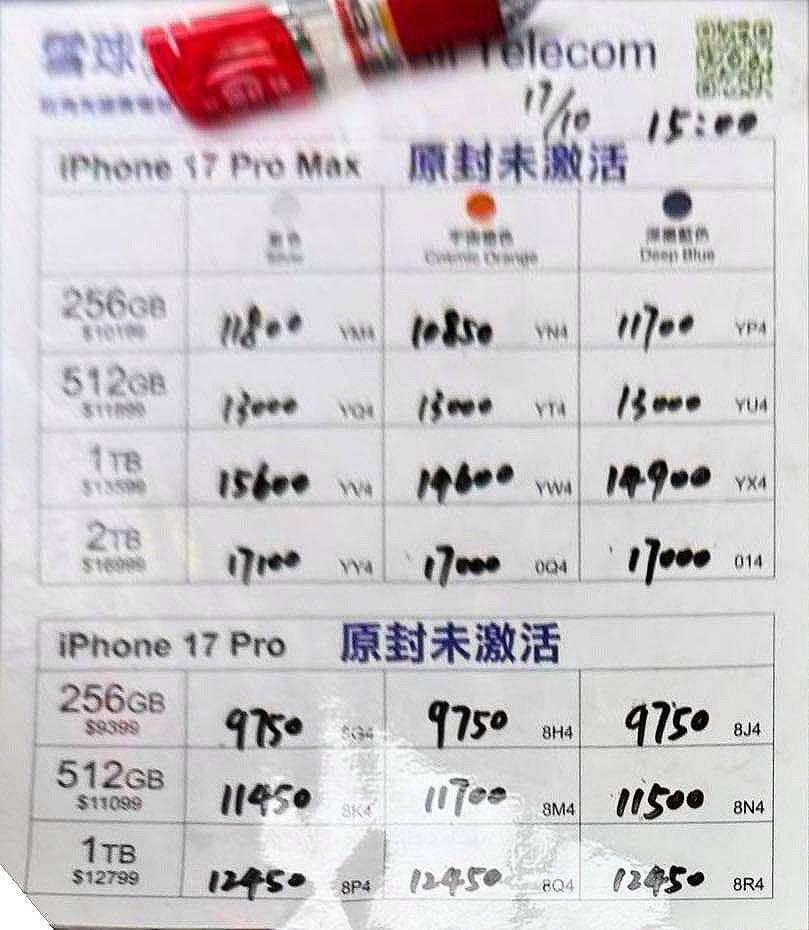 雪球 Telecom
17/10 15:00
iPhone 17 Pro Max 原封未激活
銀色 宇宙橙色 深藍色
Silver Cosmic Orange Deep Blue
256GB 11800 YM4 10850 YN4 11700 YP4
$10199
512GB 13000 YQ4 13000 YT4 13000 YU4
$11899
1TB 15600 YV4 14600 YW4 14900 YX4
$13599
2TB 17100 YY4 17000 0Q4 17000 014
$16999
iPhone 17 Pro 原封未激活
256GB 9750 8G4 9750 8H4 9750 8J4
$9399
512GB 11450 8K4 11700 8M4 11500 8N4
$11099
1TB 12450 8P4 12450 8Q4 12450 8R4
$12799